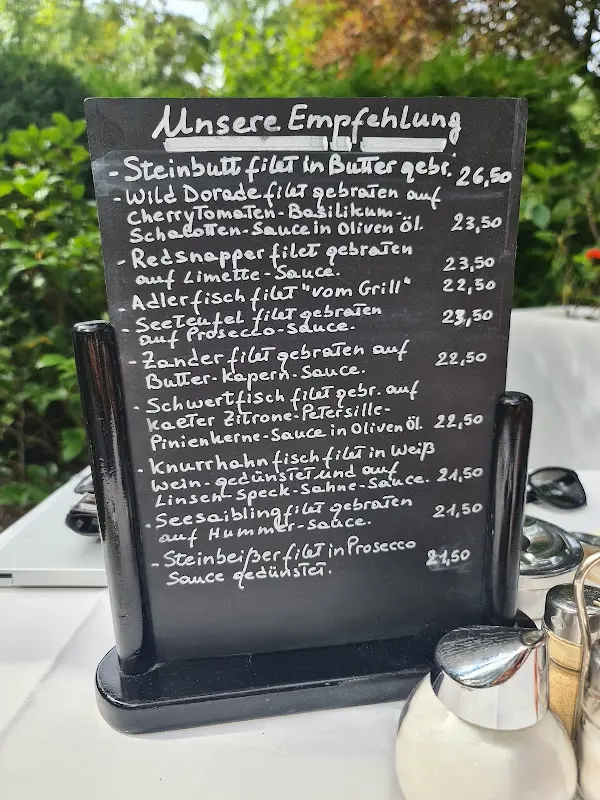 Unsere Empfehlung
- Steinbutt filet in Butter gebr. 26,50
- Wild Dorade filet gebraten auf
CherryTomaten-Basilikum-
Schalotten-Sauce in Oliven Öl. 23,50
- Redsnapper filet gebraten
auf Limette-Sauce. 23,50
- Adlerfisch filet "vom Grill" 22,50
- SeeTeufel filet gebraten
auf Prosecco-Sauce. 23,50
- Zander filet gebraten auf
Butter-Kapern-Sauce. 22,50
- Schwertfisch filet gebr. auf
kaeter Zitrone-Petersille-
Pinienkerne-Sauce in Oliven Öl 22,50
- Knurrhahnfisch filet in Weiß
wein-gedünstet und auf
Linsen-Speck-Sahne-Sauce. 21,50
- Seesaibling filet gebraten
auf Hummer-Sauce. 21,50
- Steinbeißer filet in Prosecco
Sauce gedünstet. 21,50